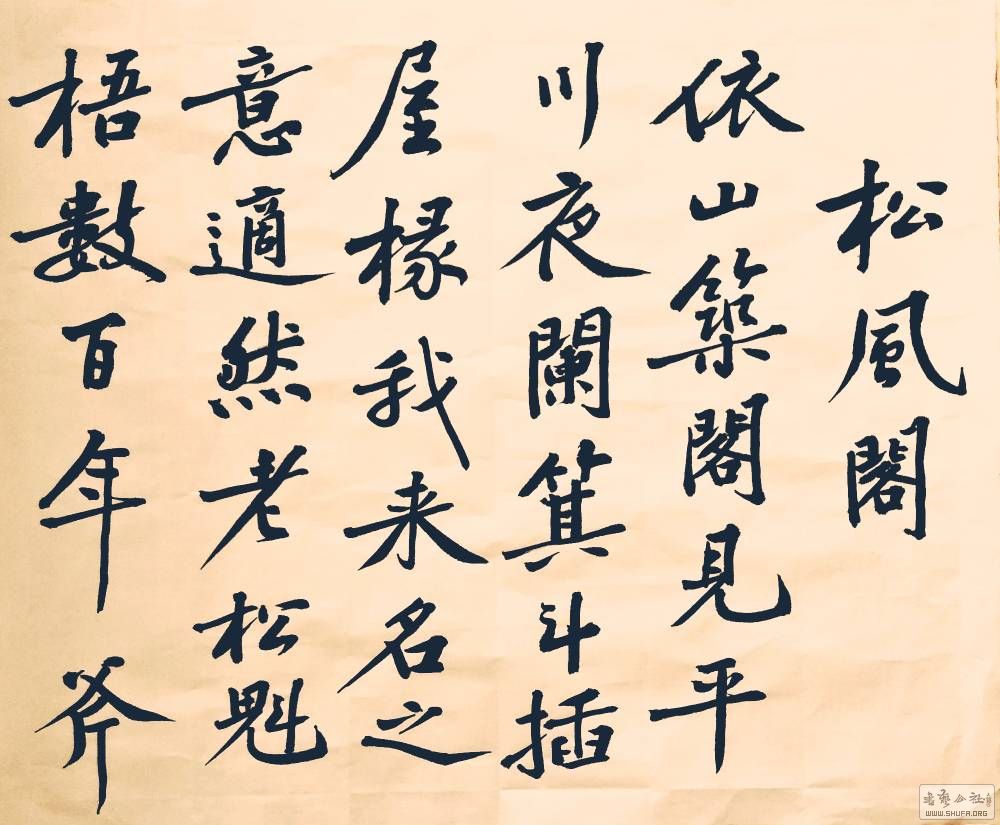 松風閣
依山築閣見平
川夜闌箕斗插
屋椽我来名之
意適然老松魁
梧數百年斧
WWW.SHUFA.ORG